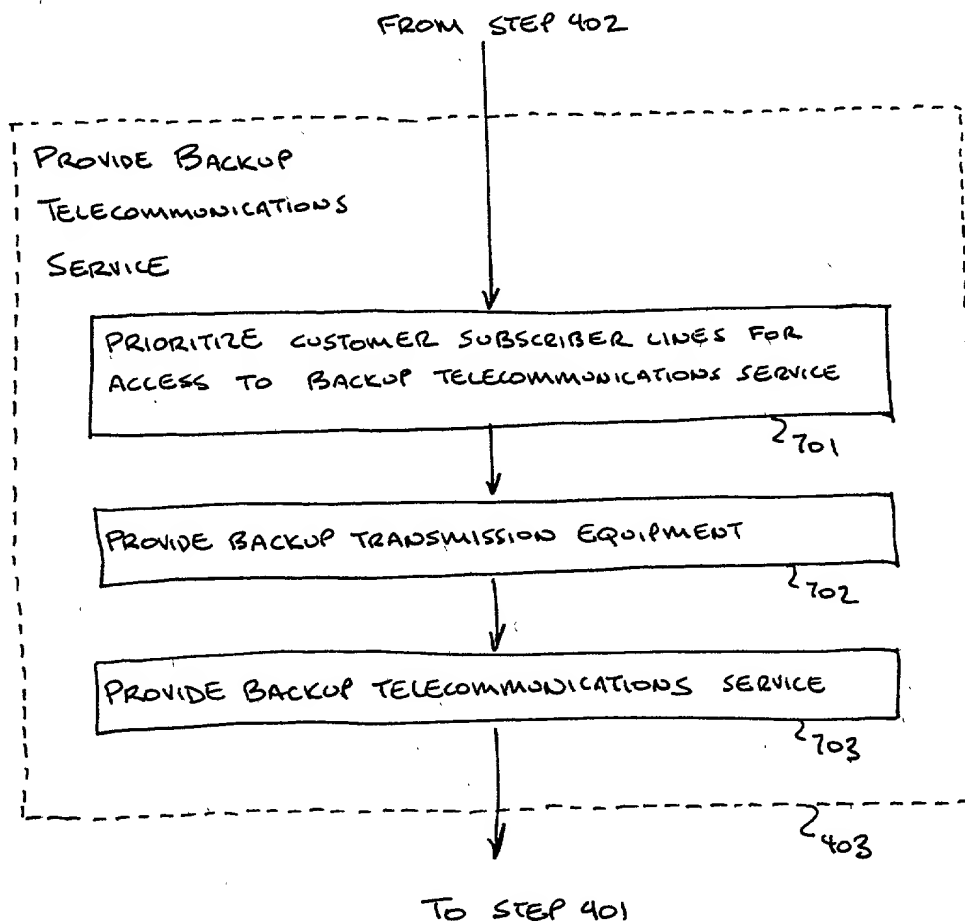 FROM STEP 402
PROVIDE BACKUP
TELECOMMUNICATIONS
SERVICE
PRIORITIZE CUSTOMER SUBSCRIBER LINES FOR
ACCESS TO BACKUP TELECOMMUNICATIONS SERVICE
701
PROVIDE BACKUP TRANSMISSION EQUIPMENT
702
PROVIDE BACKUP TELECOMMUNICATIONS SERVICE
703
403
TO STEP 401